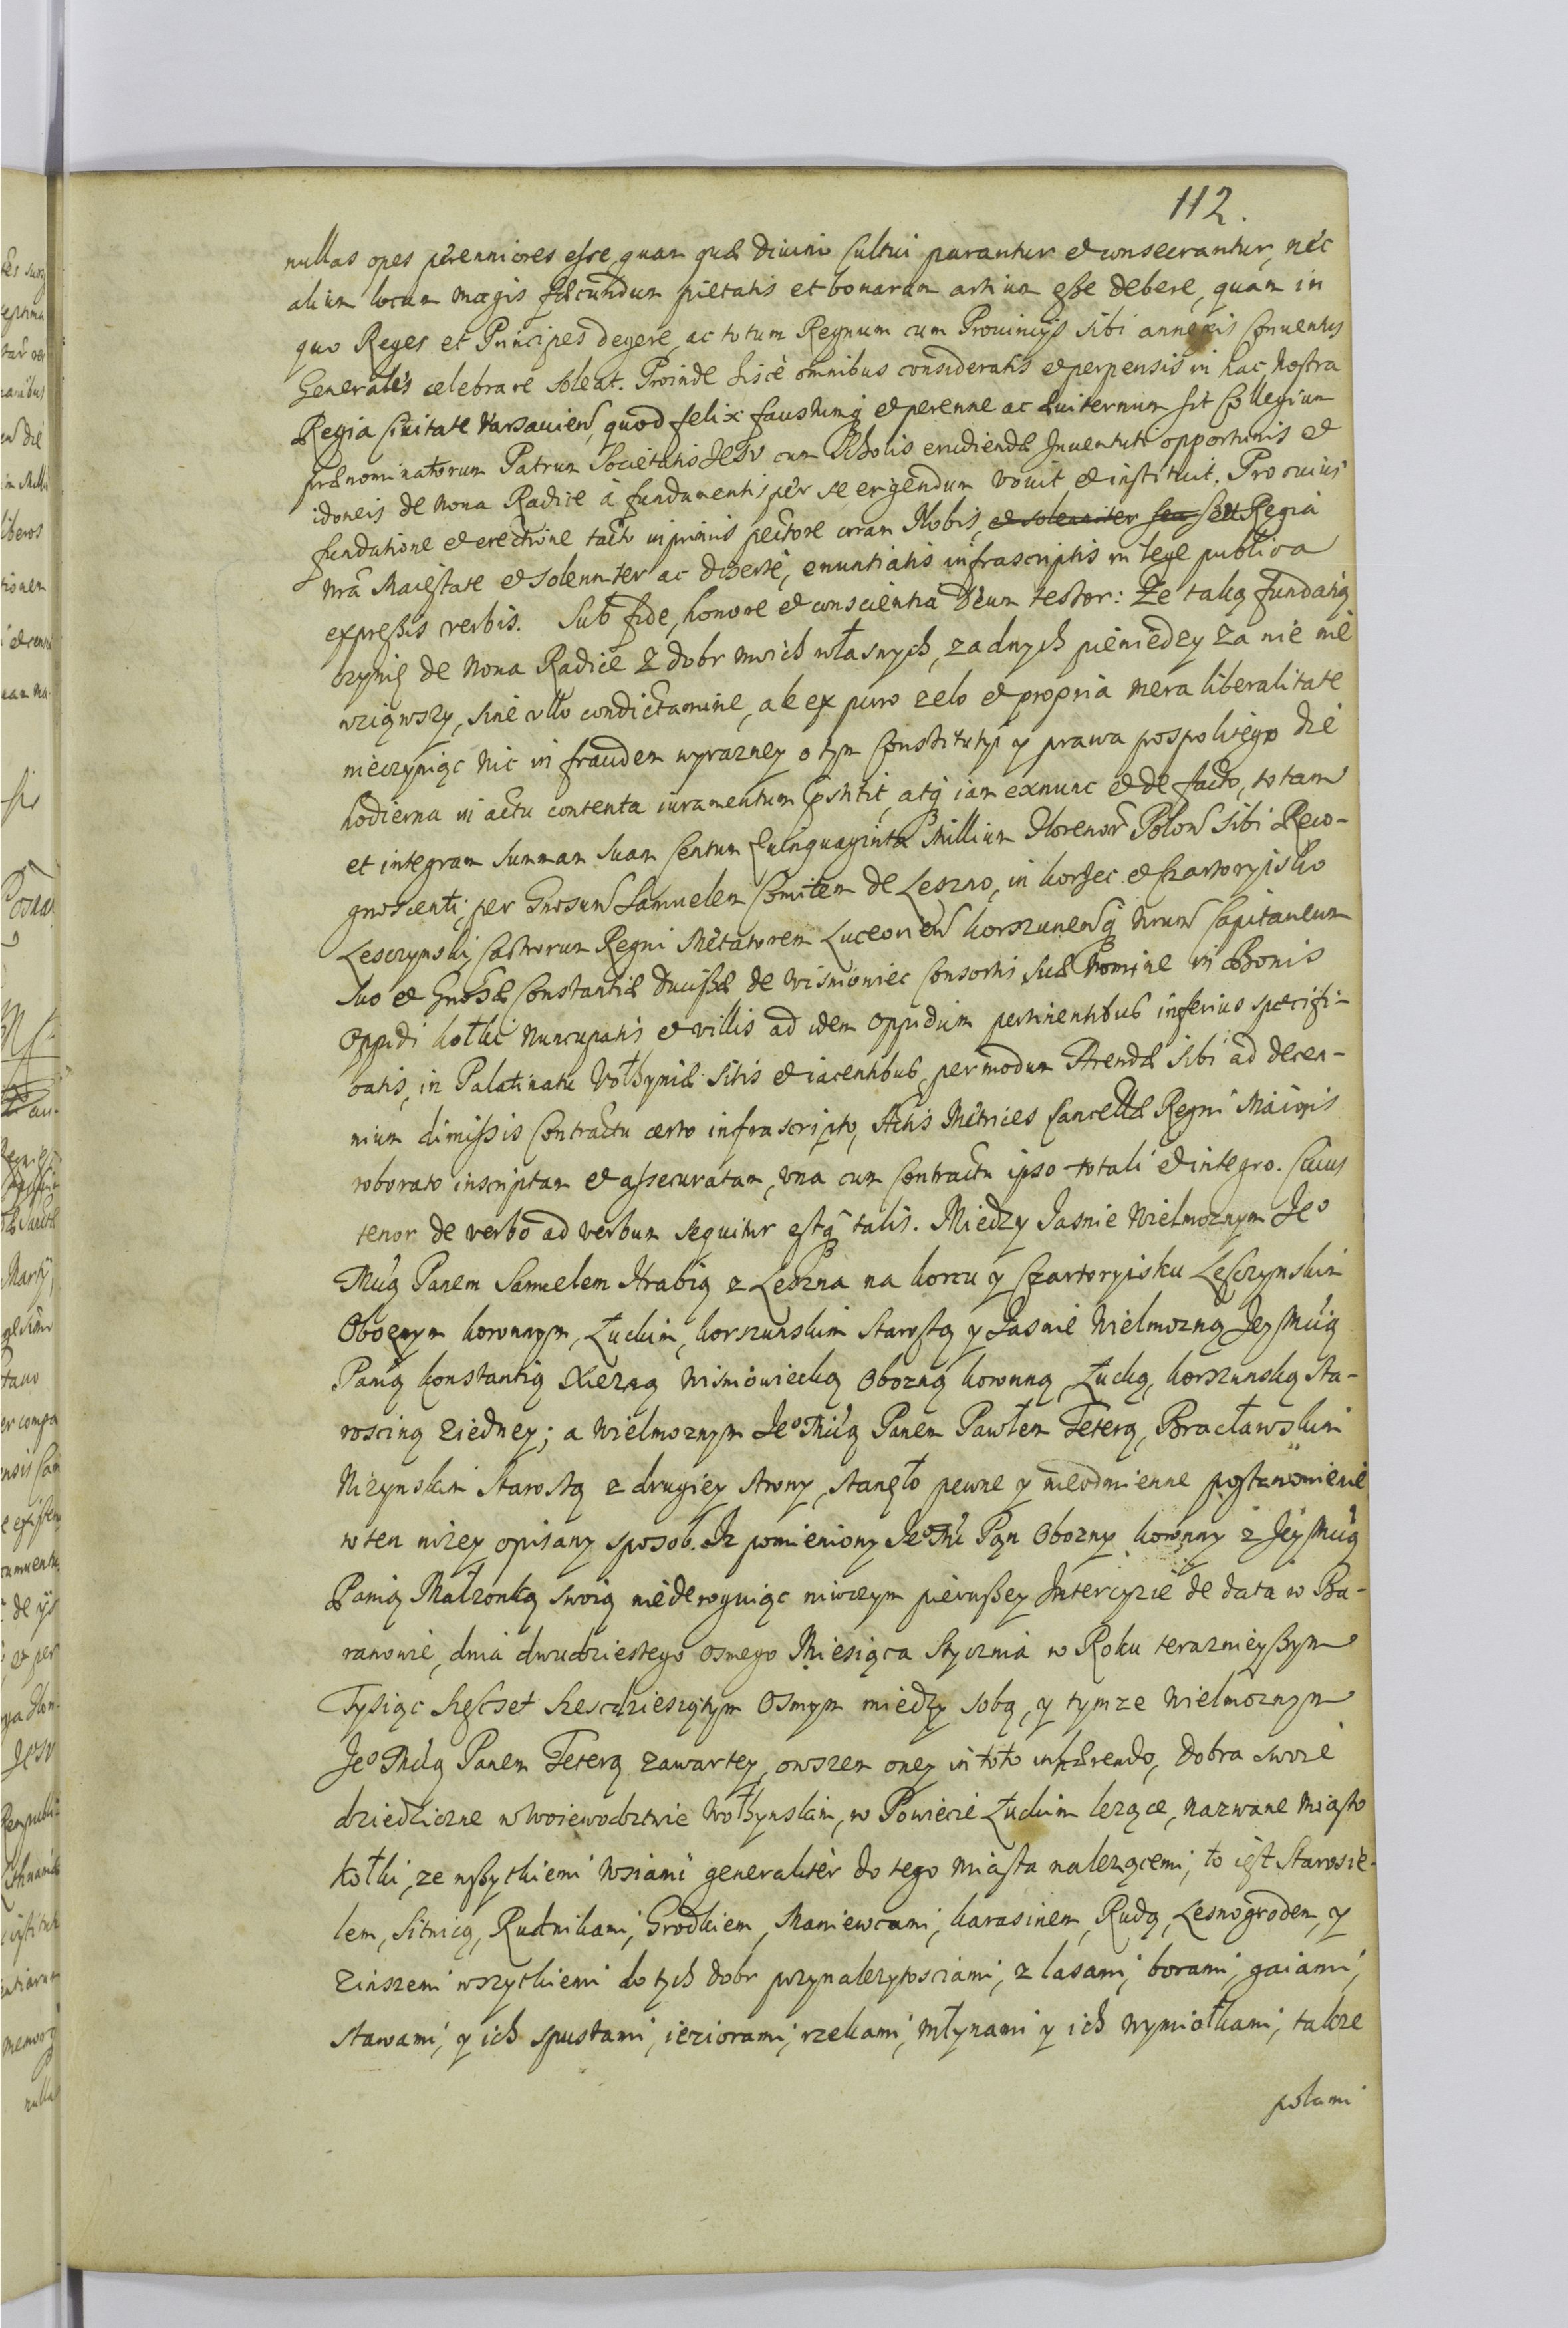 112.
nullas opes perenniores esse, quam quæ Diuino Cultui parantur et consecrantur, nec
alium locum magis fæcundum pietatis et bonarum artium esse debere, quam in
quo Reges et Principes degere, ac totum Regnum cum Prouincijs sibi annexis Conuentus
Generales celebrare soleat. Proinde hisce omnibus consideratis et perpensis in hac nostra
Regia Ciuitate Varsauien, quod felix faustumq et perenne ac æuiternum sit Collegium
prænominatorum Patrum Societatis Jesv cum Scholis erudiendæ Juuentuti opportunis et
idoneis de Noua Radice à fundamentis per se erigendum vouit et instituit. Pro cuius
fundatione et erectione tacto inprimis pectore coram Nobis, et solenniter seu seu Regia
nrã Maiestate et solenniter ac diserte, enuntiatis infrascriptis in lege publica
expreßis verbis. Sub fide, honore et conscientia Deum testor: Ze taką fundatią
czynię de Noua Radice z dobr moich własnych, zadnych pieniedzy za nie nie
wziąwszy, sine vllo condictamine, ale ex puro zelo et propria mera liberalitate
nieczyniąc nic in fraudem wyrazney o tym Constitutyi y prawa pospolitego die
hodierna in actu contenta iuramentum Cstitit, atq iam exnunc et de facto, totam
et integram summam suam Centum Quinquaginta Millium Florenor Polon sibi Reco-
gnoscenti, per Gnosum Samuelem Comitem de Leszno, in Korzec et Czartoryisko
Lesczynski Castrorum Regni Metatorem Luceorien Korszunensq nrum Capitaneum
suo et Gnosæ Constantiæ Ducissæ de Wisniowiec Consortis suæ Nomine in Bonis
Oppidi Kołki nuncupatis et villis ad idem Oppidum pertinentibus inferius specifi-
catis, in Palatinatu Vołhyniæ sitis et iacentibus, per modum Arendæ sibi ad decen-
nium dimissis Contractu certo infrascripto, Actis Metrices Cancellæ Regni Maioris
roborato inscriptam et assecuratam, vna cum Contractu ipso totali et integro. Cuius
tenor de verbo ad verbum sequitur estq talis. Miedzy Jasnie Wielmoznym Jeo
Mcią Panem Samuelem Hrabią z Leszna na Korcu y Czartoryisku Lesczynskim
Oboznym Koronnym, Łuckim, Korszunskim Starostą y Jasnie Wielmozną Jey Mcią
Panią Konstantią Xiezną Wisniowiecką Obozną Koronną, Łucką, Korszunską Sta-
roscina ziedney; a Wielmoznym Jeo Mcią Panem Pawłem Teterą, Bracławskim
Nizynskim Starostą z drugiey strony, stanęło pewne y nieodmienne postanowienie
w ten nizey opisany sposob. Iz pomieniony Jeo Mć Pan Obozny Koronny z Jey Mcią
Panią Małzonką swoią niederoguiąc niwczym pierwßey Intercyzie de data w Ba-
ranowie, dnia dwudziestego osmego Miesiąca Stycznia w Roku terazniey­ßym
Tysiąc szescset szescdziesiątym Osmym miedzy sobą, y tymze Wielmoznym
Jeo Mcią Panem Teterą zawartey, owszem oney in toto inhærendo, Dobra swoie
dziedziczne w Woiewodztwie Wołhynskim, w Powiecie Łuckim lezące, nazwane Miasto
Kołki, ze wßytkiemi Wsiami generaliter do tego Miasta nalezącemi, to iest Starosie-
lem, Sitnicą, Rudnikami, Grodkiem, Maniewcami, Karasinem, Rudą, Lesnogrodem, y
zinszemi wszytkiemi do tych dobr przynalezytosciami, z lasami, borami, gaiami,
stawami, y ich spustami, ieziorami, rzekami, Młynami y ich wymiołkami, takze
polami